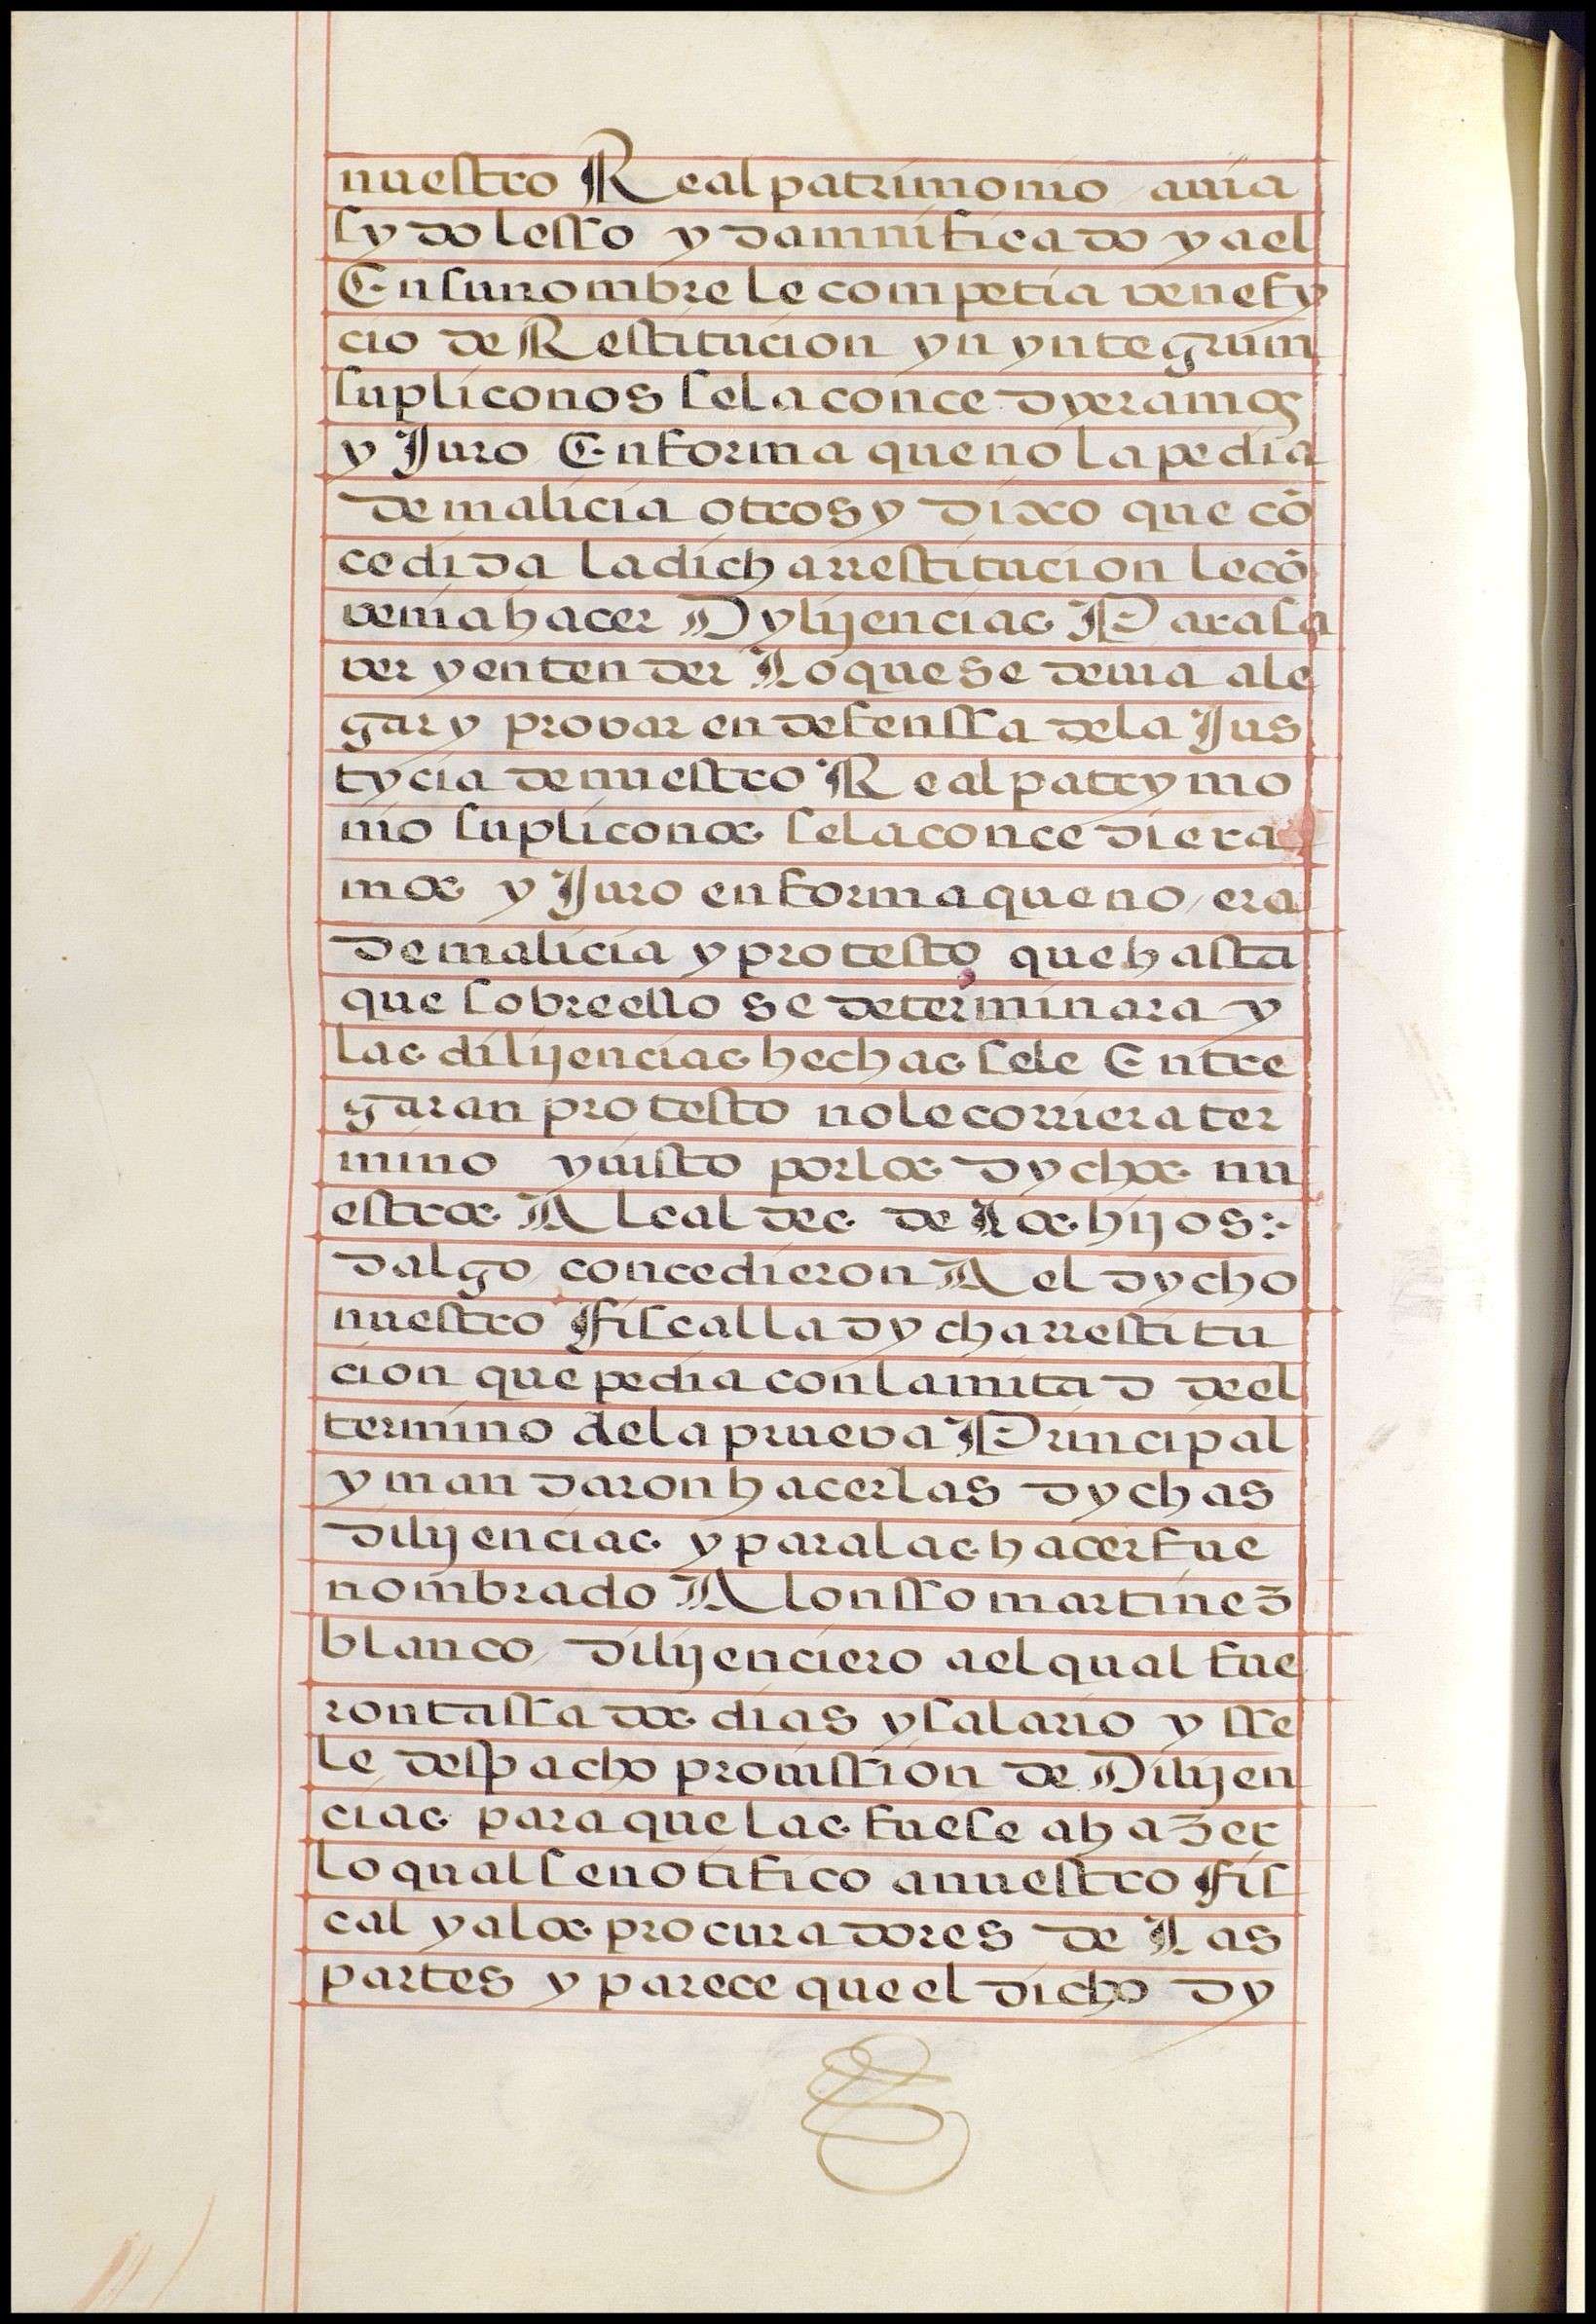 nuestro Real patrimonio avia
sydo lesso y damnificado y a el
En su nombre le competia venefy
cio de Restitucion yn yntegrum
suplico nos se la concedyeramos
y Juro En forma que no la pedia
de malicia otrosy dixo que cō
cedida la dicha rrestitucion le cō
venia hacer Dylijencias Para sa
ver y entender Lo que se devia ale
gar y provar en defenssa de la Jus
tycia de nuestro Real patrymo
nio suplico nos se la concediera
mos y Juro en forma que no era
de malicia y protesto que hasta
que sobre ello se determinara y
las dilijencias hechas se le Entre
garan protesto no le corriera ter
mino y visto por los dychos nu
estros Alcaldes de Los hijos
dalgo concedieron A el dycho
nuestro fiscal la dycha rrestitu
cion que pedia con la mitad de el
termino de la prueva Principal
y mandaron hacer las dychas
dilijencias y para las hacer fue
nombrado Alonsso martinez
blanco dilijenciero a el qual fue
ron tassados dias y salario y sse
le despacho provission de Dilijen
cias para que las fuese a hazer
lo qual se notifico a nuestro fis
cal y a los procuradores de Las
partes y parece que el dicho dy